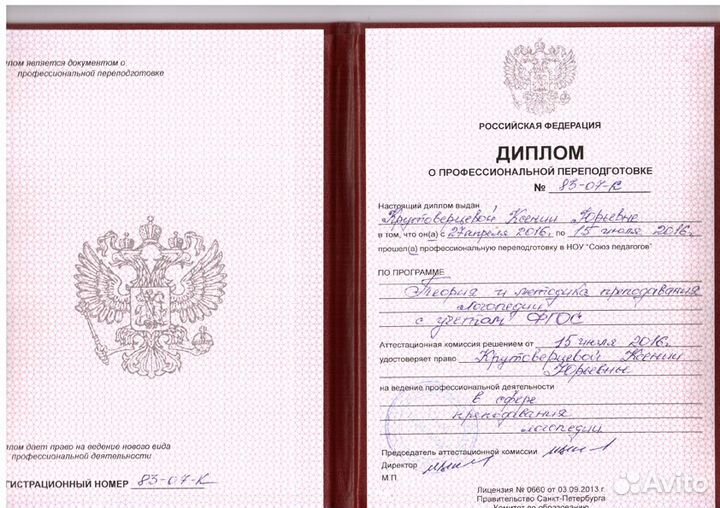 плом является документом о
профессиональной переподготовке
плом дает право на ведение нового вида
профессиональной деятельности
ГИСТРАЦИОННЫЙ НОМЕР 83-07-К
РОССИЙСКАЯ ФЕДЕРАЦИЯ
ДИПЛОМ
О ПРОФЕССИОНАЛЬНОЙ ПЕРЕПОДГОТОВКЕ
№ 83-07-К
Настоящий диплом выдан
Крутоверцевой Ксении Юрьевне
в том, что он(а) с 27 апреля 2016г. по 15 июля 2016г.
прошел(а) профессиональную переподготовку в НОУ "Союз педагогов"
ПО ПРОГРАММЕ
Теория и методика преподавания
логопедии
с учетом ФГОС
Аттестационная комиссия решением от 15 июля 2016г.
удостоверяет право Крутоверцевой Ксении
Юрьевны
на ведение профессиональной деятельности
в сфере
преподавания
логопедии
Председатель аттестационной комиссии
Директор
М П
Лицензия № 0660 от 03.09.2013 г.
Правительство Санкт-Петербурга
Комитет по образованию
Avito